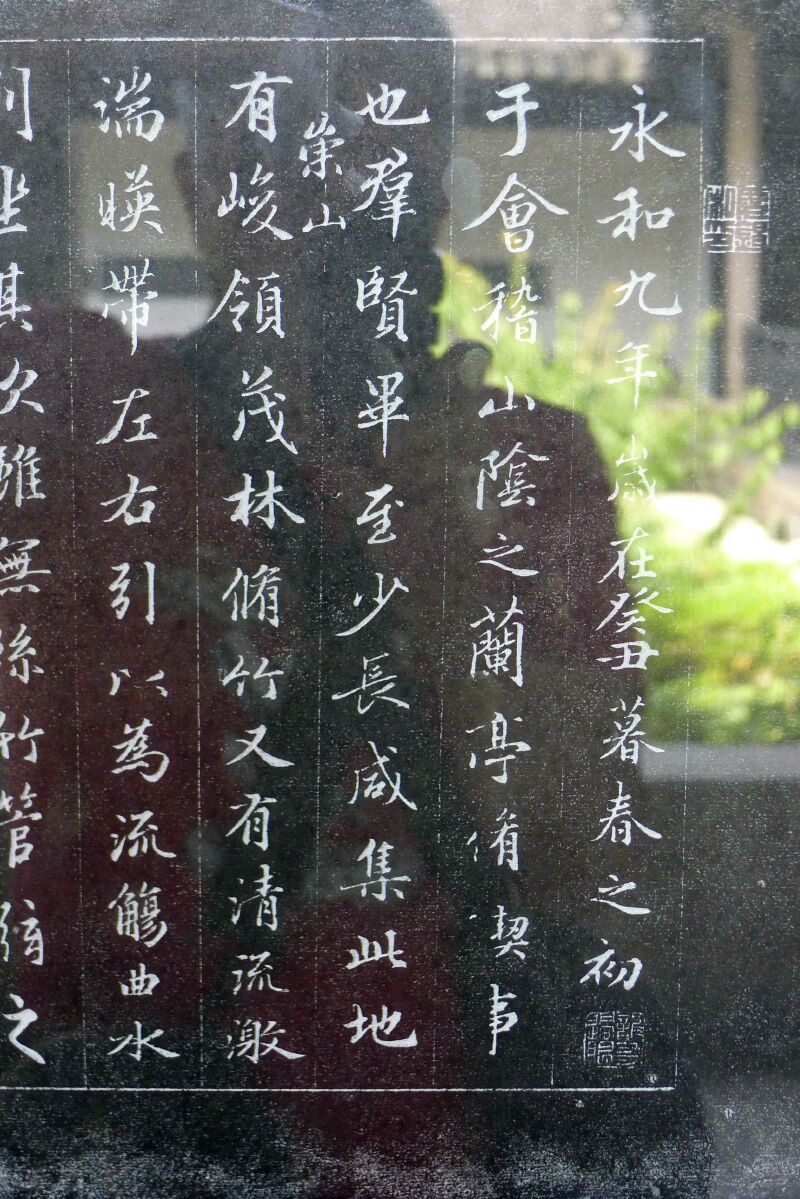 永和九年歲在癸丑暮春之初
于會稽山陰之蘭亭脩禊事
也羣賢畢至少長咸集此地
崇山
有峻領茂林脩竹又有清流激
湍暎帶左右引以為流觴曲水
列坐其次雖無絲竹管絃之